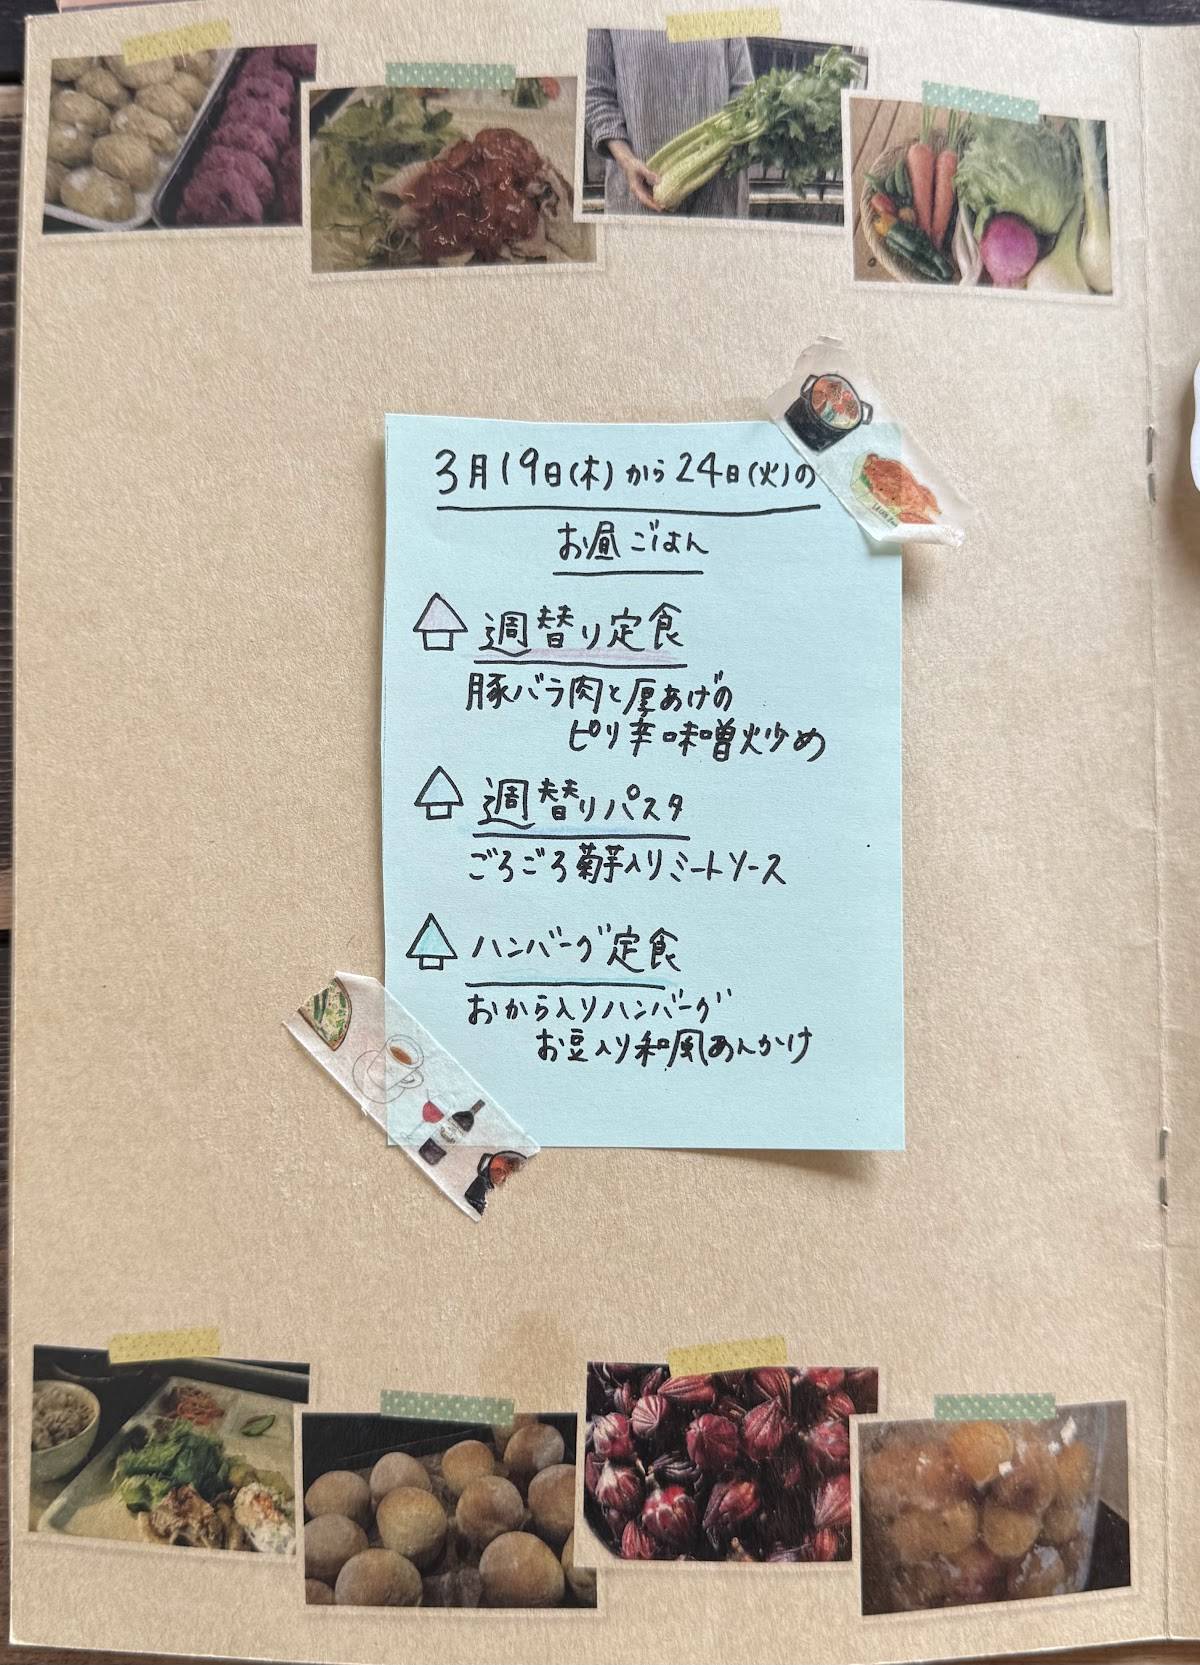 3月19日(木)から24日(火)の
お昼ごはん
週替り定食
豚バラ肉と厚あげの
ピリ辛味噌炒め
週替りパスタ
ごろごろ菊芋入りミートソース
ハンバーグ定食
おから入りハンバーグ
お豆入り和風あんかけ